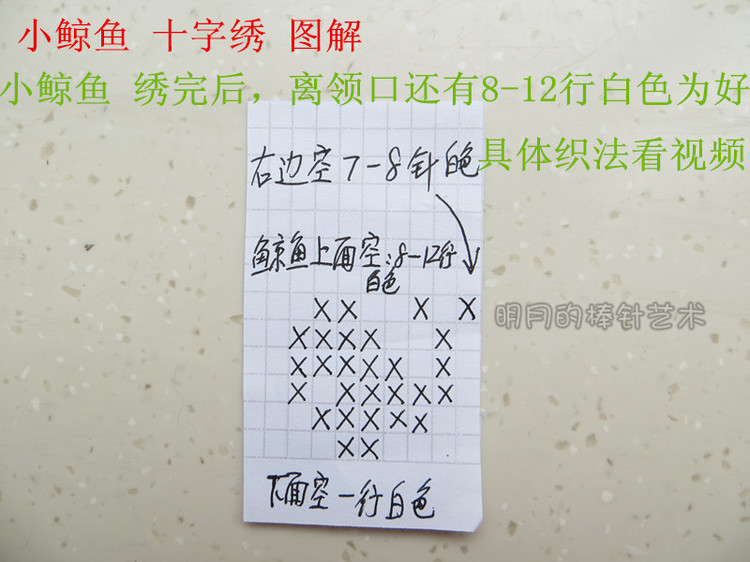 小鲸鱼 十字绣 图解
小鲸鱼 绣完后，离领口还有8-12行白色为好
具体织法看视频
右边空7-8针白色
鲸鱼上面空:8-12行
白色
XX X X
XXXX X
XXXXX X
X XXXXX
XXXXX
XX
下面空一行白色
明月的棒针艺术